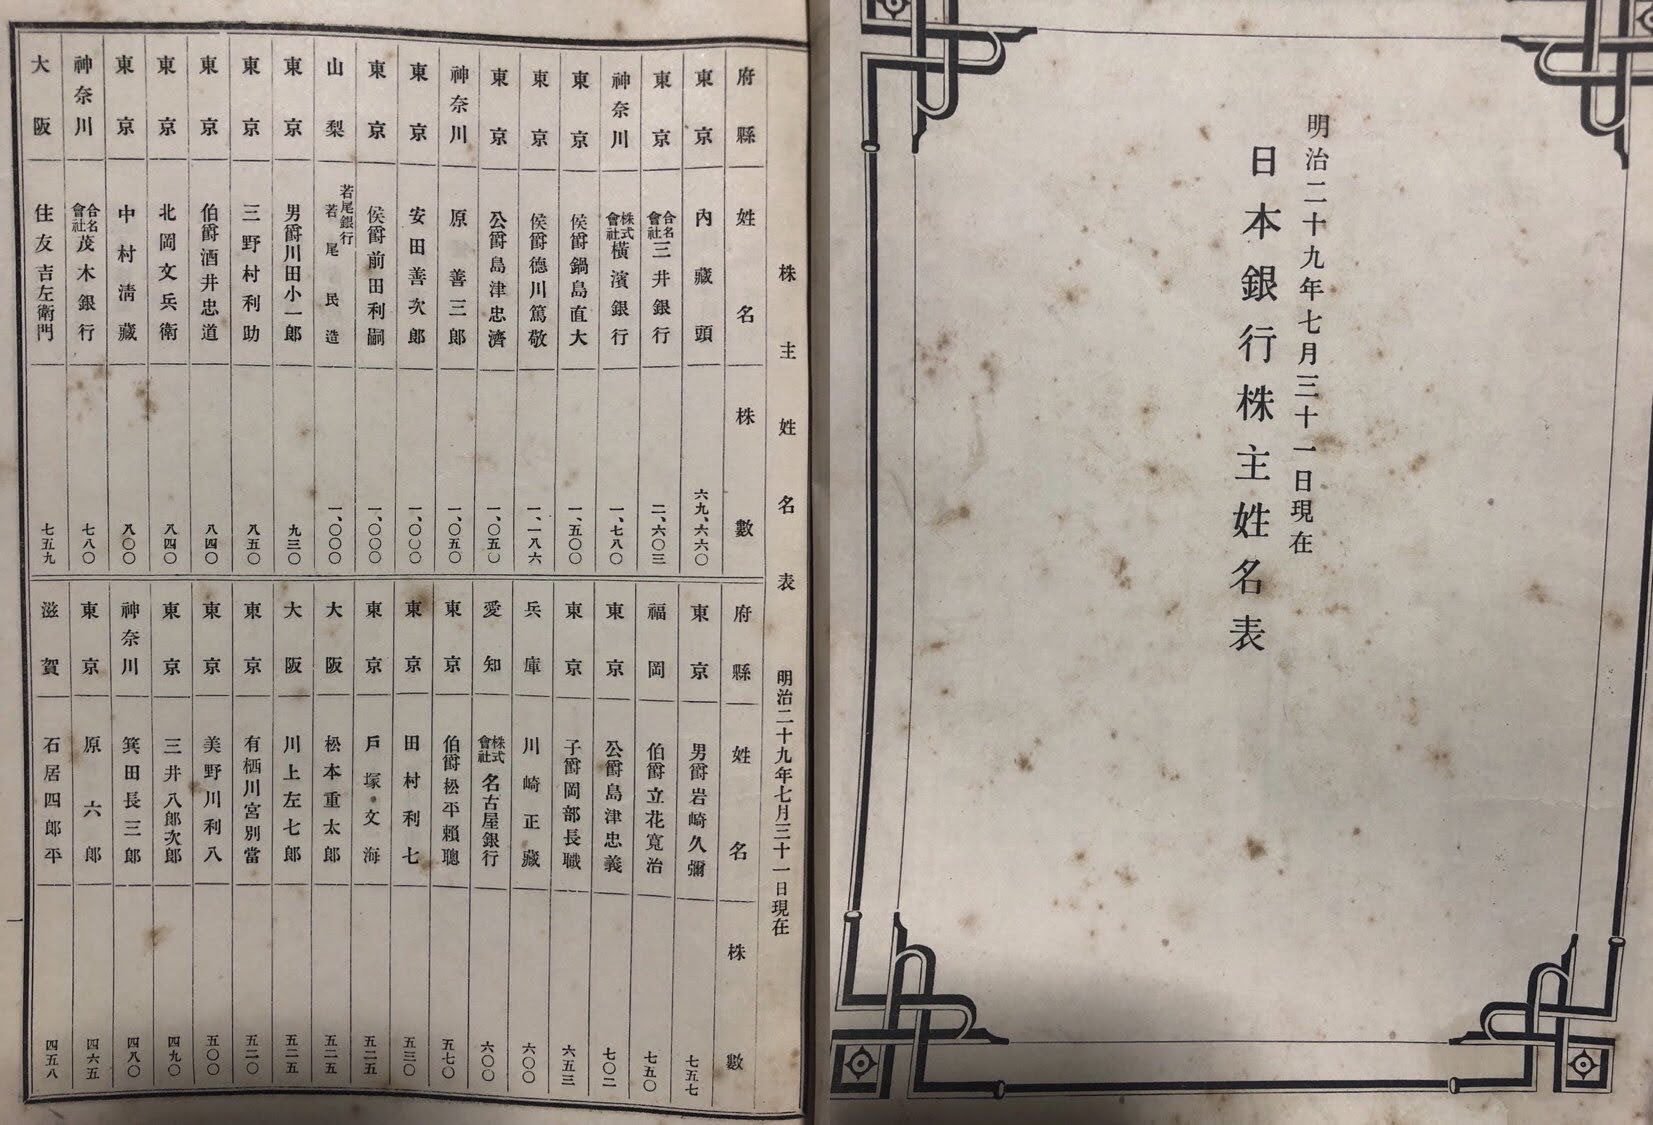 明治二十九年七月三十一日現在
日本銀行株主姓名表
株主姓名表 明治二十九年七月三十一日現在
府縣 姓名 株數
東京 內藏頭 六九、六六〇
東京 合名會社三井銀行 二、六〇三
神奈川 株式會社橫濱銀行 一、七八〇
東京 侯爵鍋島直大 一、五〇〇
東京 侯爵德川篤敬 一、一八六
東京 公爵島津忠濟 一、〇五〇
神奈川 原善三郎 一、〇五〇
東京 安田善次郎 一、〇〇〇
東京 侯爵前田利嗣 一、〇〇〇
山梨 若尾銀行若尾民造 一、〇〇〇
東京 男爵川田小一郎 九三〇
東京 三野村利助 八五〇
東京 伯爵酒井忠道 八四〇
東京 北岡文兵衛 八四〇
東京 中村淸藏 八〇〇
神奈川 合名會社茂木銀行 七八〇
大阪 住友吉左衛門 七五九
府縣 姓名 株數
東京 男爵岩崎久彌 七五七
福岡 伯爵立花寬治 七五〇
東京 公爵島津忠義 七〇二
東京 子爵岡部長職 六五三
兵庫 川崎正藏 六〇〇
愛知 株式會社名古屋銀行 六〇〇
東京 伯爵松平賴聰 五七〇
東京 田村利七 五三〇
東京 戶塚文海 五二五
大阪 松本重太郎 五二五
大阪 川上左七郎 五二五
東京 有栖川宮別當 五二〇
東京 美野川利八 五〇〇
東京 三井八郎次郎 四九〇
神奈川 箕田長三郎 四八〇
東京 原六郎 四六五
滋賀 石居四郎平 四五八
一